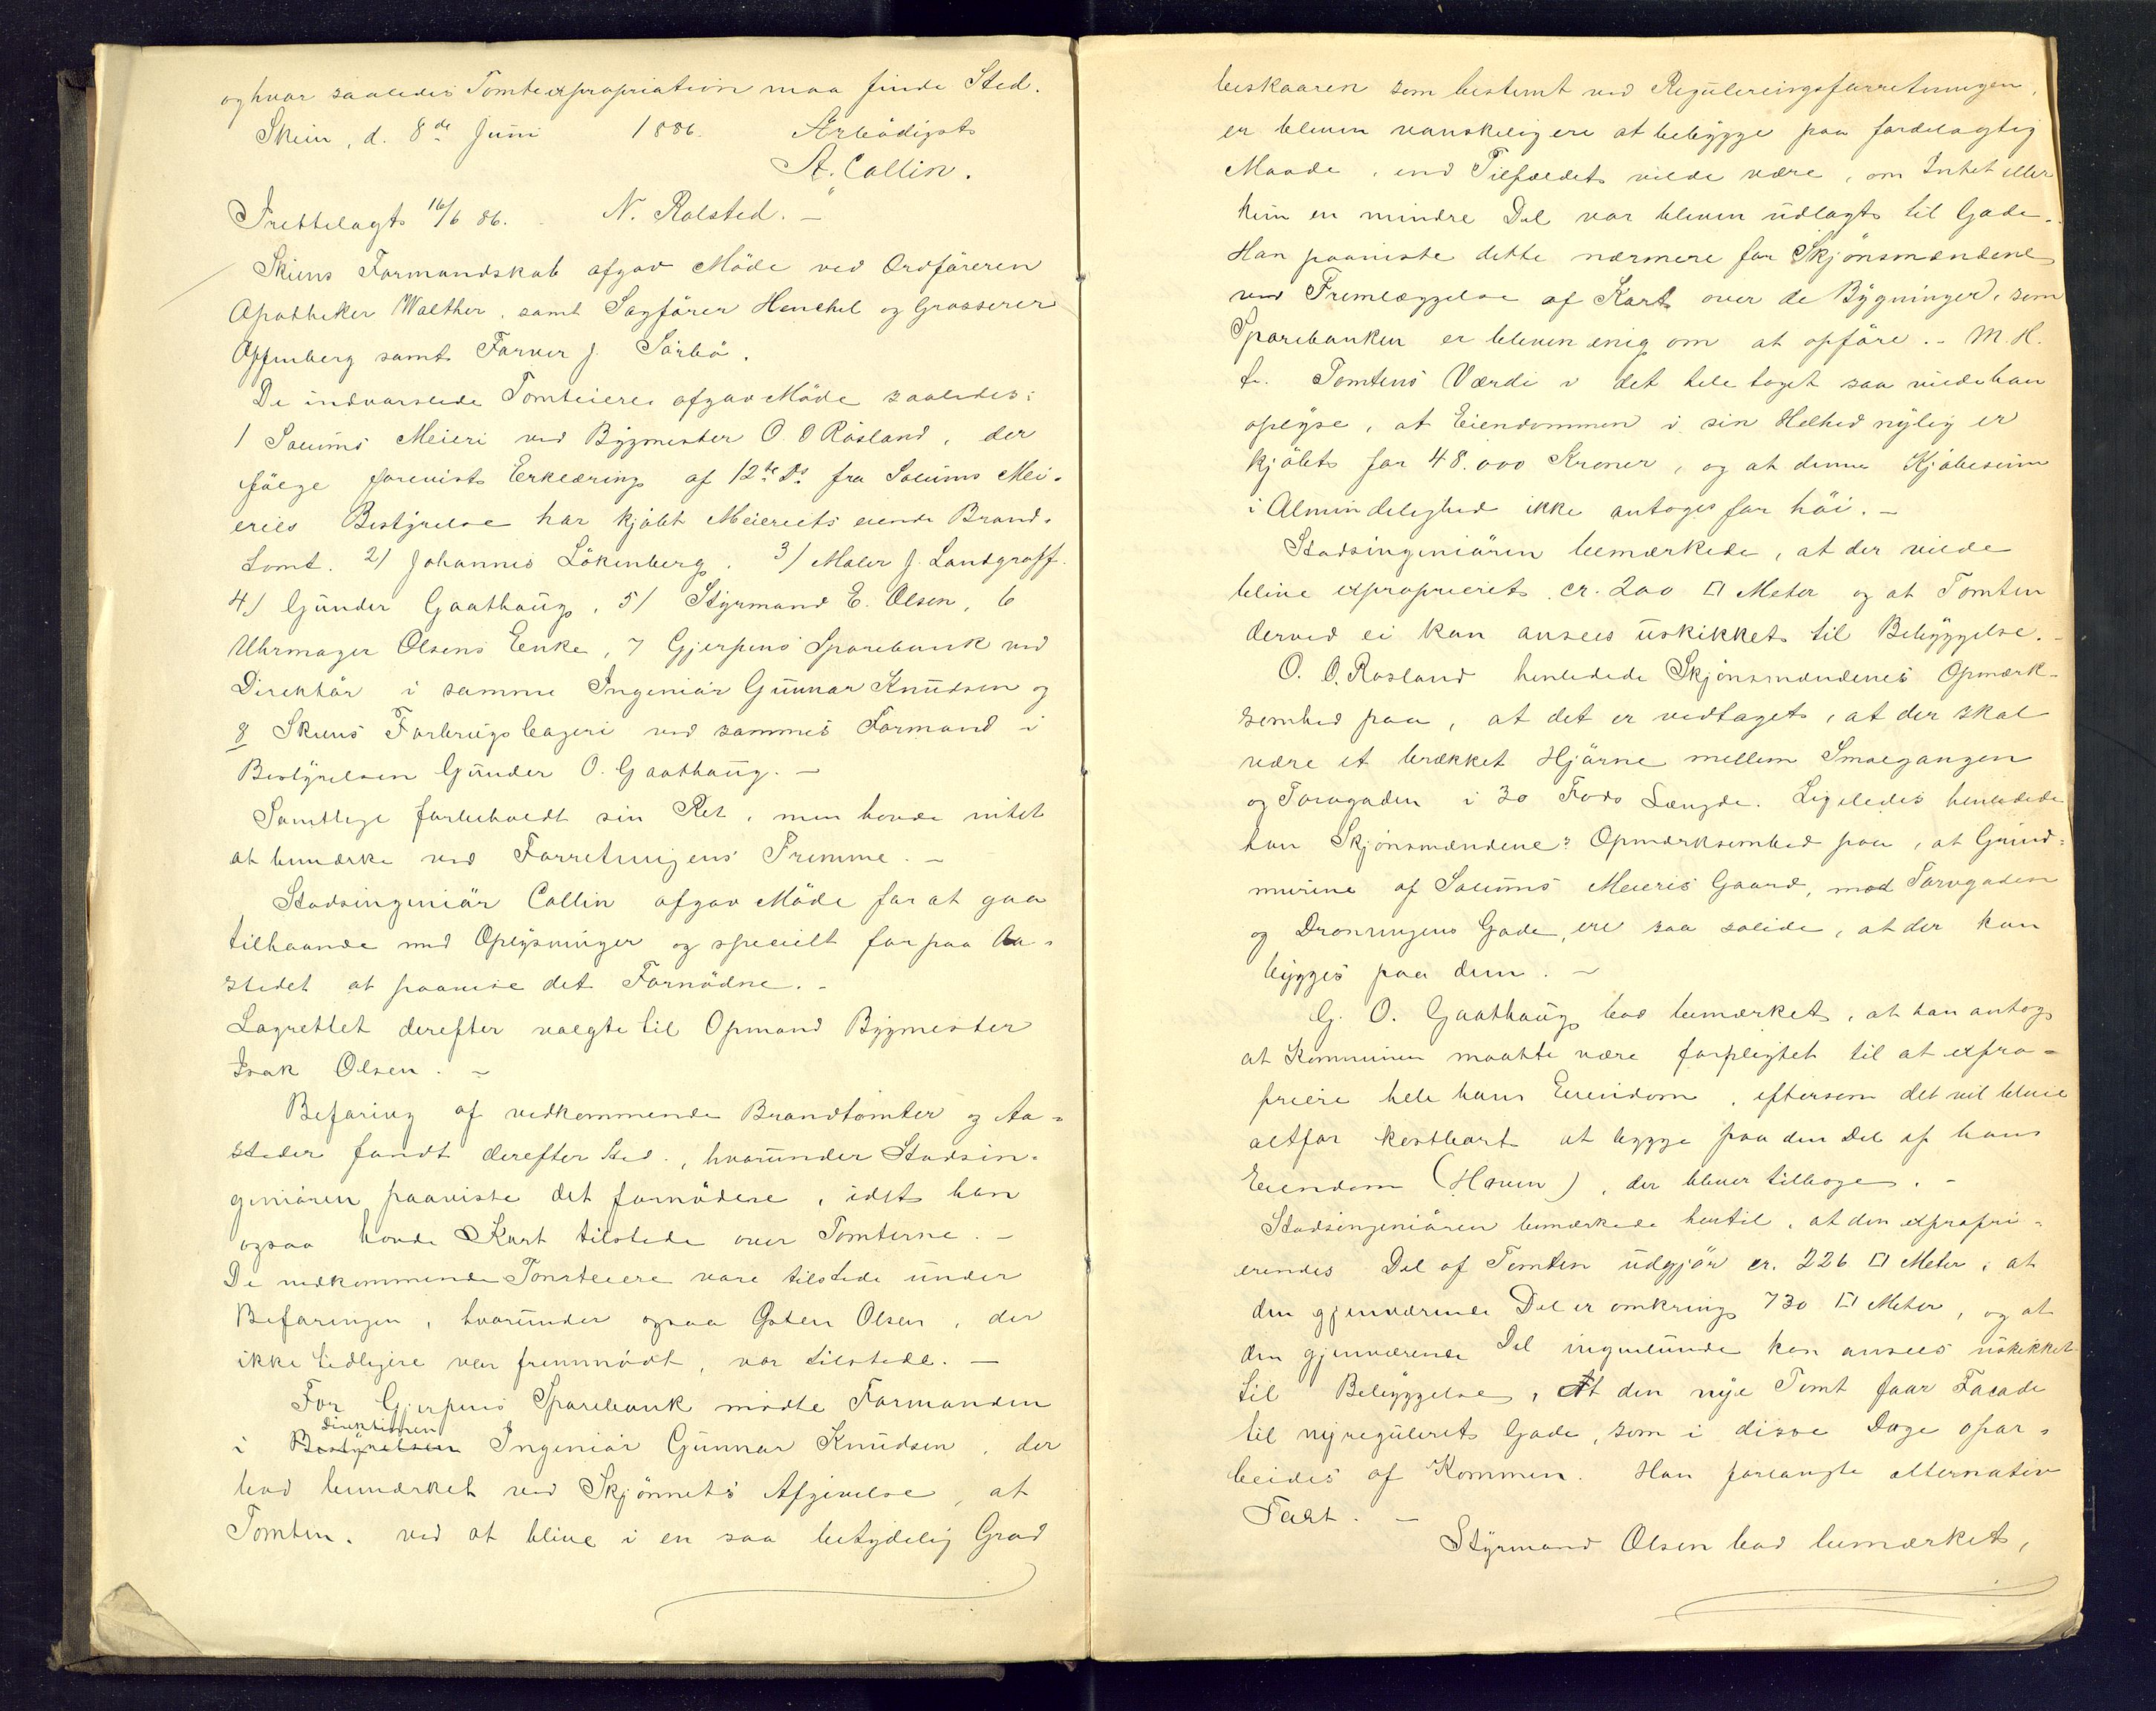 og hvor saaledes Tomteexpropriation maa finde Sted.
Skien, d. 8de Juni 1886. Ærbödigst
A. Collin.
Fremlagt 16/6 86. N. Rolsted. –
Skiens Formandskab afgav Möde ved Ordföreren
Apotheker Walther, samt Sagförer Henchel og Grosserer
Oppenberg samt Farver J. Sörbö.
De indvarslede Tomteiere afgav Möde saaledes:
1 Solums Meieri ved Bygmester O. O Rösland, der
fölge forevist Erklæring af 12te Ds fra Solums Mei-
eries Bestyrelse har kjöbt Meieriets eiende Brand-
tomt. 2) Johannes Lökenberg. 3) Maler J. Landgraff.
4) Gunder Gaathaug, 5) Styrmand E. Olsen, 6
Uhrmager Olsens Enke, 7 Gjerpens Sparebank ved
Direktör i samme Ingeniör Gunnar Knudsen og
8 Skiens Forbrugsbageri ved sammes Formand i
Bestyrelsen Gunder O. Gaathaug. –
Samtlige forbeholdt sin Ret, men havde intet
at bemærke ved Forretningens Fremme. –
Stadsingeniör Collin afgav Möde for at gaa
tilhaande med Oplysninger og specielt for paa Aa-
stedet at paavise det Fornödne. –
Lagrettet derefter valgte til Opmand Bygmester
Isak Olsen. –
Befaring af vedkommende Brandtomter og Aa-
steder fandt derefter Sted, hvorunder Stadsin-
geniören paaviste det fornödne, idet han
ogsaa havde Kart tilstede over Tomterne. –
De vedkommende Tomteiere vare tilstede under
Befaringen, hvorunder ogsaa Osten Olsen, der
ikke tidligere var fremmödt, var tilstede. –
For Gjerpens Sparebank mödte Formanden
Direktionen
i Bestyrelsen Ingeniör Gunnar Knudsen, der
bad bemærket ved Skjönnets Afgivelse, at
Tomten, ved at blive i en saa betydelig Grad
beskaaren som bestemt ved Reguleringsforretningen,
er bleven vanskeligere at bebygge paa fordelagtig
Maade, end Tilfældet vilde være, om Intet eller
kun en mindre Del var bleven udlagt til Gade.
Han paaviste dette nærmere for Skjönsmændene
ved Fremlæggelse af Kart over de Bygninger, som
Sparebanken er bleven enig om at opföre. – M. H.
t. Tomtens Værdi i det hele taget saa vilde han
oplyse, at Eiendommen i sin Helhed nylig er
kjöbt for 48.000 Kroner, og at denne Kjöbesum
i Almindelighed ikke antoges for höi. –
Stadsingeniören bemærkede, at der vilde
blive exproprieret cr. 200 □ Meter og at Tomten
derved ei kan ansees uskikket til Bebyggelse. –
O. O. Rosland henledede Skjönsmændenes Opmærk-
somhed paa, at det er vedtaget, at der skal
være et brækket Hjörne mellem Smalgangen
og Torvgaden i 30 Fods Længde. Ligeledes henledede
han Skjönsmændenes Opmærksomhed paa, at Grund-
murene af Solums Meieris Gaard, mod Torvgaden
og Dronningens Gade, ere saa solide, at der kan
bygges paa dem. –
G. O. Gaathaug bad bemærket, at han antog
at Kommunen maatte være forpligtet til at expro-
priere hele hans Eiendom, eftersom det vil blive
altfor kostbart at bygge paa den Del af hans
Eiendom (Haven), der bliver tilbage. –
Stadsingeniören bemærkede hertil, at den expropri-
erendes Del af Tomten udgjör cr. 226 □ Meter, at
den gjenværende Del er omkring 730 □ Meter, og at
den gjenværende Del ingenlunde kan ansees uskikket
til Bebyggelse, At den nye Tomt faar Facade
til nyreguleret Gade, som i disse Dage opar-
beides af Kommen. Han forlangte alternativ
Taxt. –
Styrmand Olsen bad bemærket,